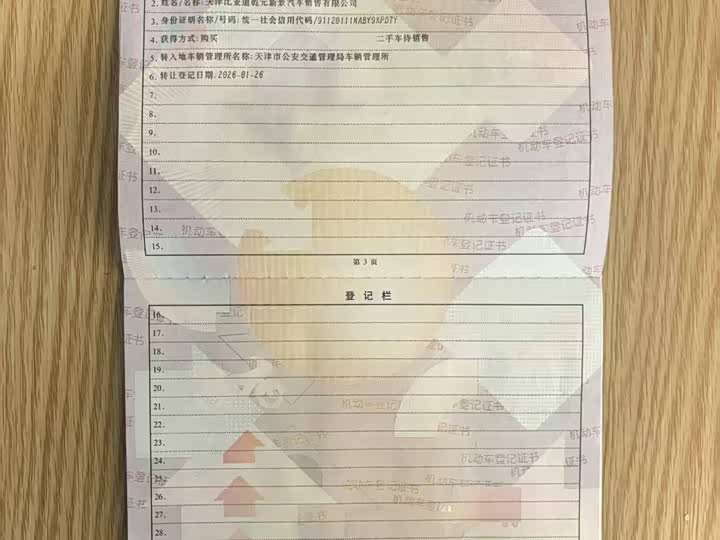 2. 姓名/名称:天津比亚迪乾元新景汽车销售有限公司
3. 身份证明名称/号码:统一社会信用代码/91120111MABY9XPD7Y
4. 获得方式:购买 二手车待销售
5. 转入地车辆管理所名称:天津市公安交通管理局车辆管理所
6. 转让登记日期:2026-01-26
7.
8.
9.
10.
11.
12.
13.
14.
15.
第 3 页
登 记 栏
16.
17.
18.
19.
20.
21.
22.
23.
24.
25.
26.
27.
28.
机动车登记证书
机动车登记证书
机动车登记证书
机动车登记证书
机动车登记证书